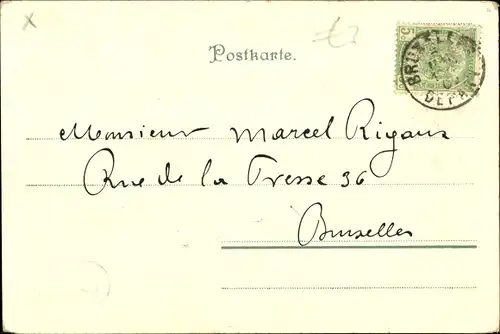 Postkarte.
BRUXELLES
DEPART
5
Monsieur Marcel Rigaux
Rue de la Tresse 36
Bruxelles